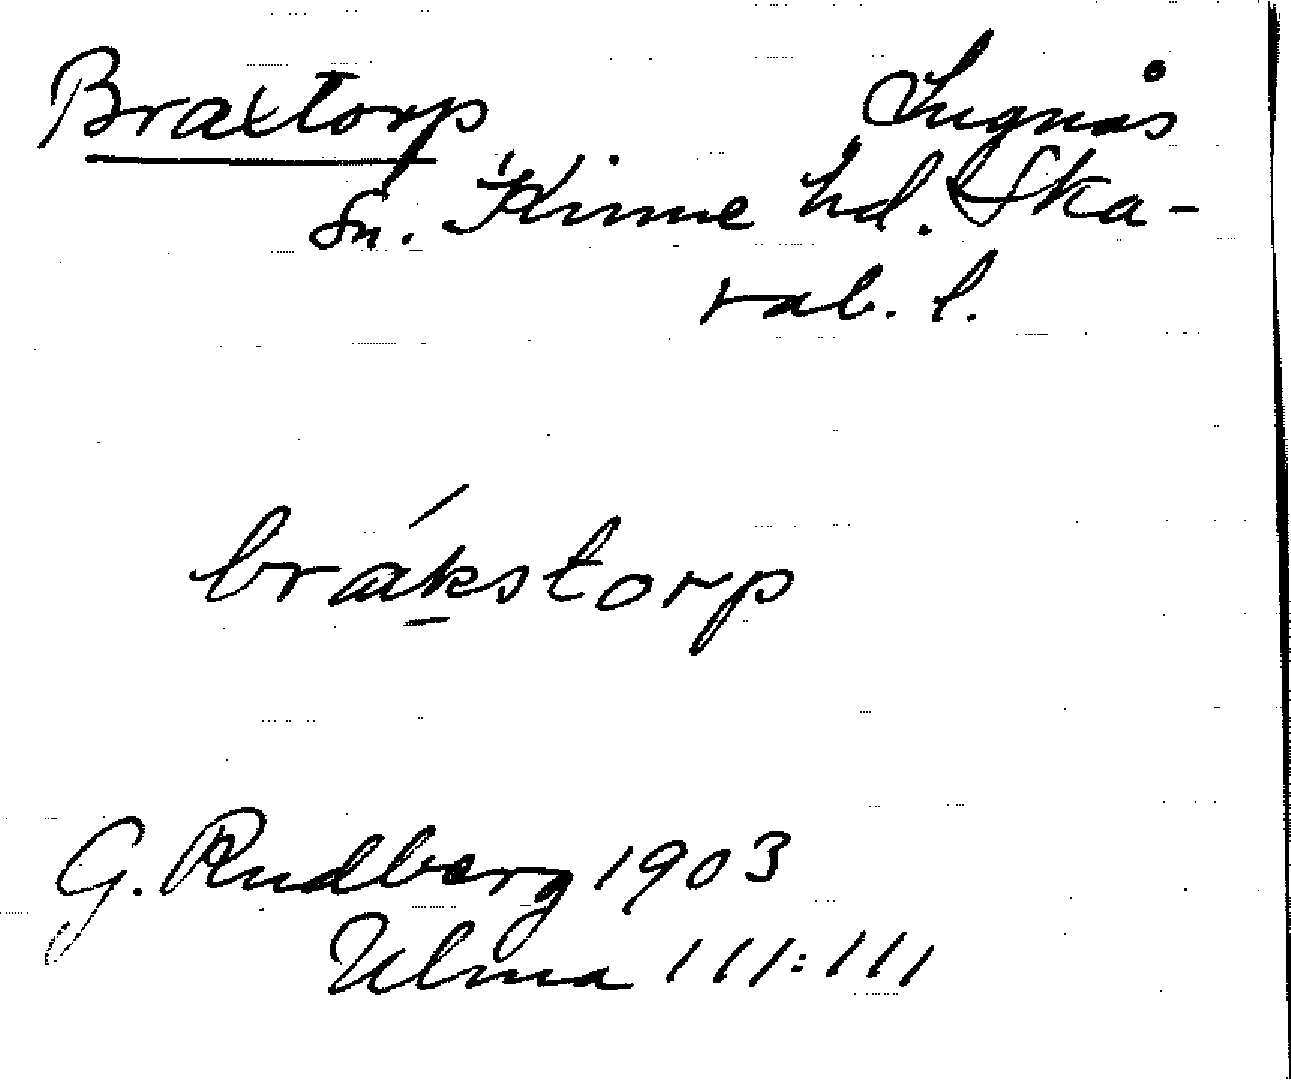 Braxtorp Lugnås
Sn. Kinne hd. Ska-
rab. l.
brákstorp
G. Rudberg 1903
Ulma 111:111